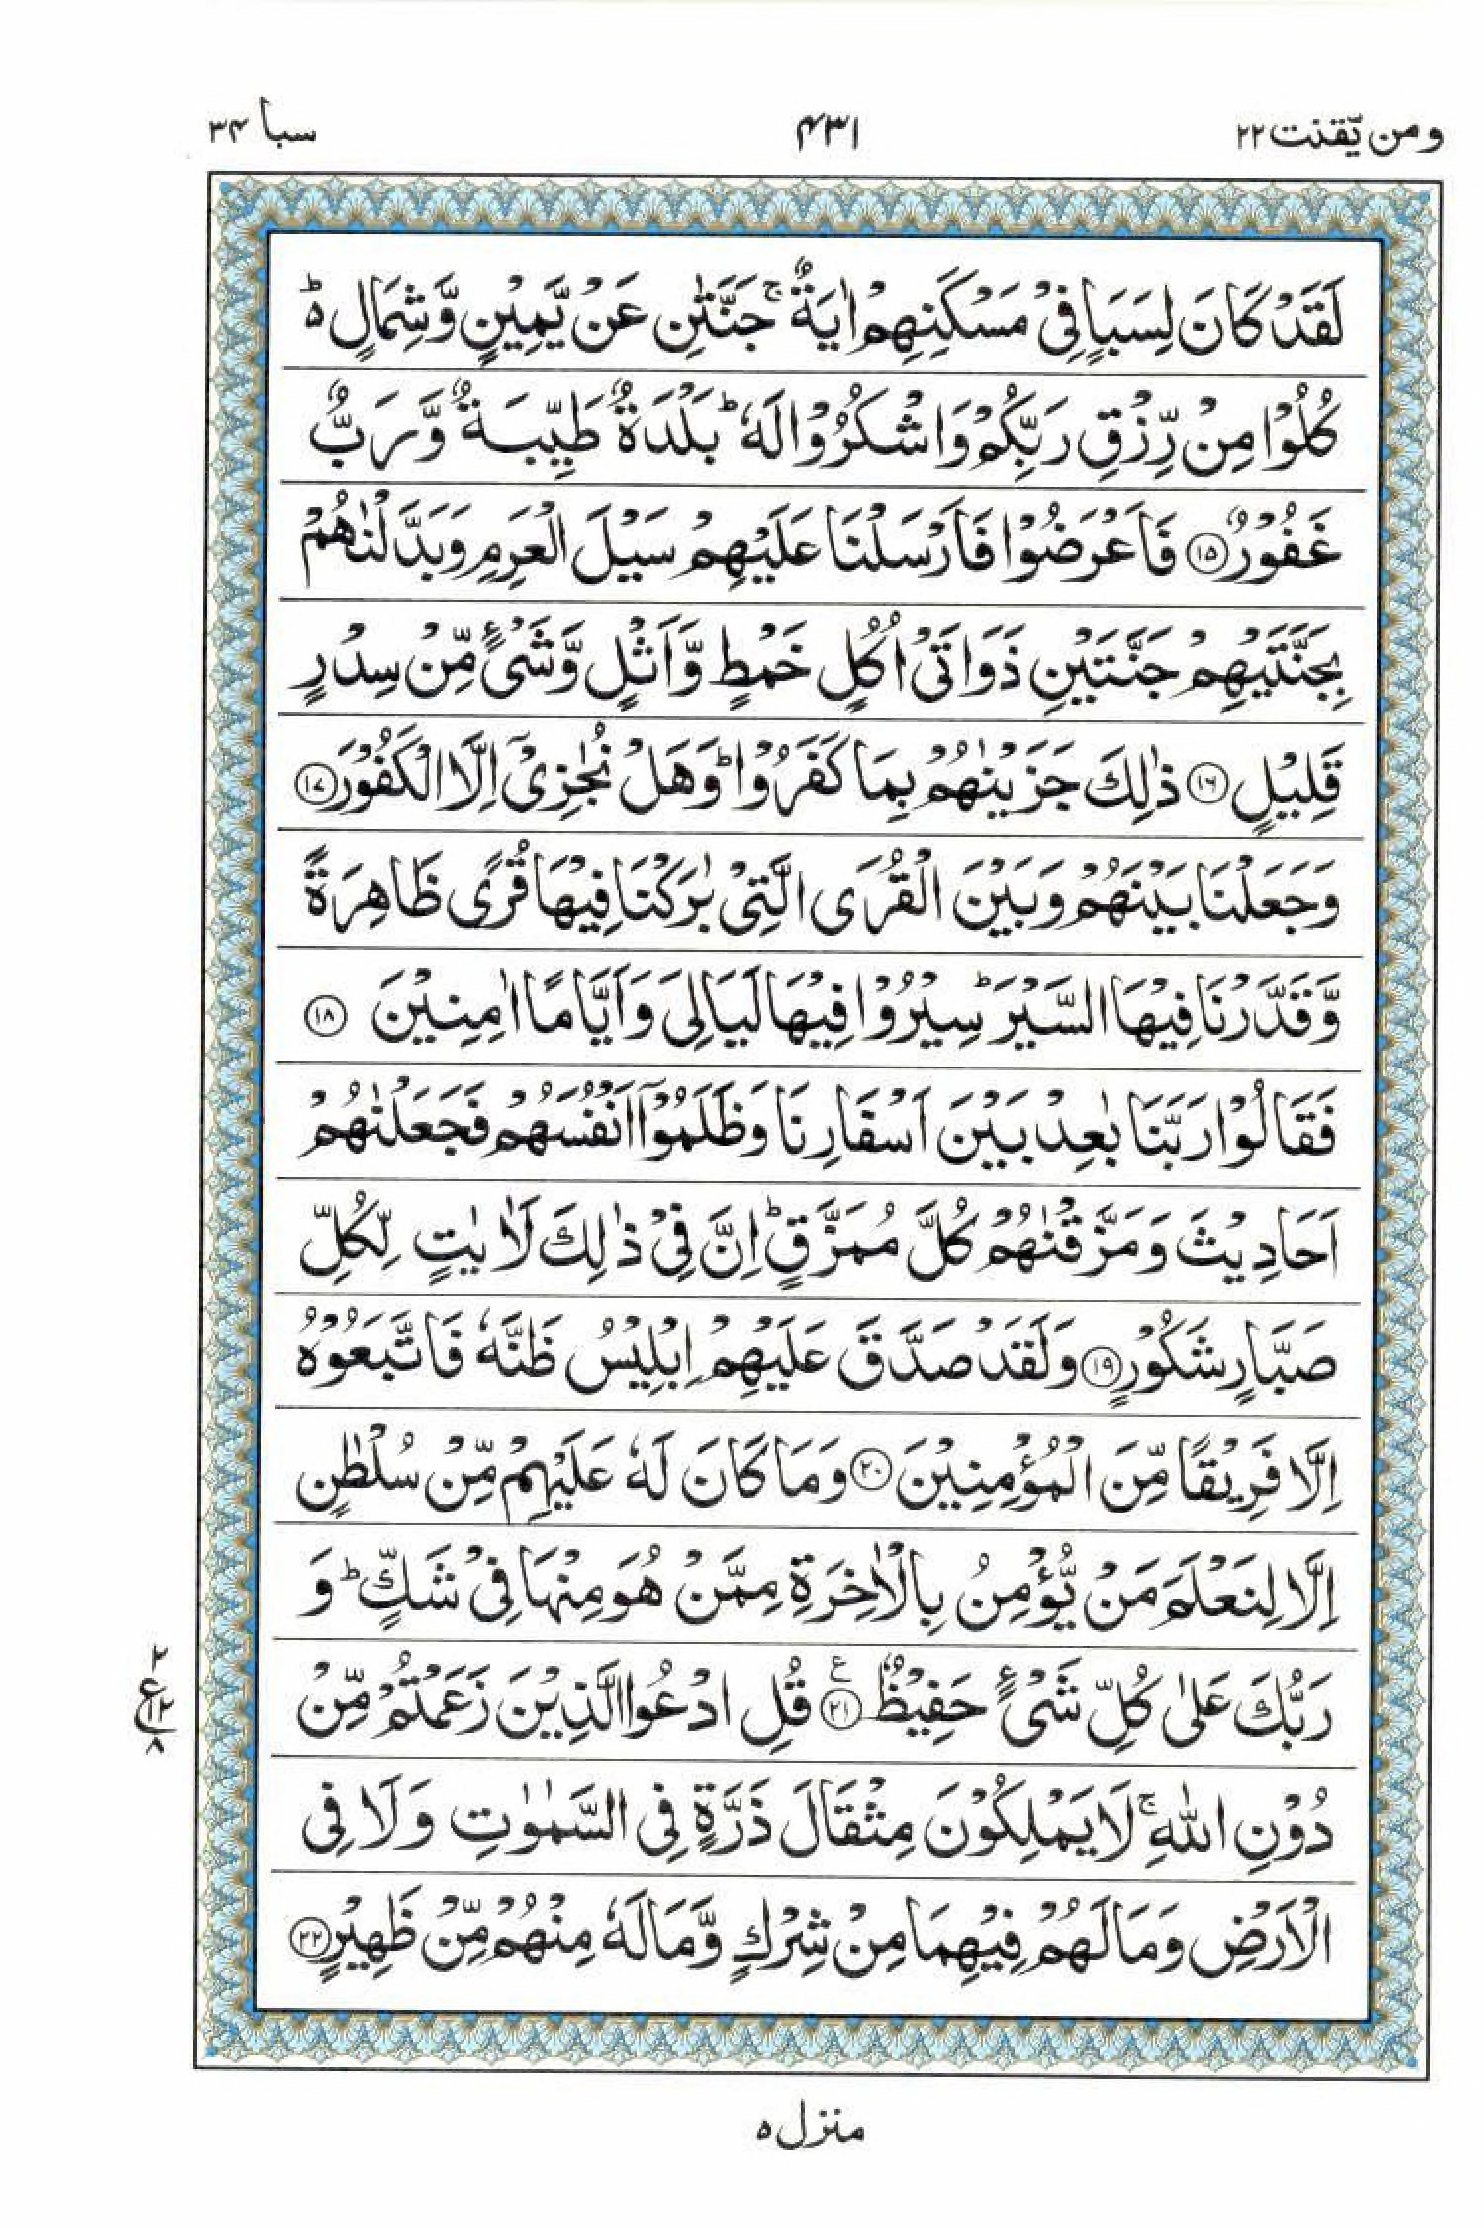 ومن یّقنت ٢٢
٤٣١
سبا ٣٤
لَقَدْ كَانَ لِسَبَاٍ فِیْ مَسْكَنِهِمْ اٰیَةٌ ۚ جَنَّتٰنِ عَنْ یَّمِیْنٍ وَّشِمَالٍ ؕ۬
كُلُوْا مِنْ رِّزْقِ رَبِّكُمْ وَاشْكُرُوْا لَهٗ ؕ بَلْدَةٌ طَیِّبَةٌ وَّرَبٌّ
غَفُوْرٌ ﴿١٥﴾ فَاَعْرَضُوْا فَاَرْسَلْنَا عَلَیْهِمْ سَیْلَ الْعَرِمِ وَبَدَّلْنٰهُمْ
بِجَنَّتَیْهِمْ جَنَّتَیْنِ ذَوَاتَیْ اُكُلٍ خَمْطٍ وَّاَثْلٍ وَّشَیْءٍ مِّنْ سِدْرٍ
قَلِیْلٍ ﴿١٦﴾ ذٰلِكَ جَزَیْنٰهُمْ بِمَا كَفَرُوْا ؕ وَهَلْ نُجٰزِیْۤ اِلَّا الْكَفُوْرَ ﴿١٧﴾
وَجَعَلْنَا بَیْنَهُمْ وَبَیْنَ الْقُرَی الَّتِیْ بٰرَكْنَا فِیْهَا قُرًی ظَاهِرَةً
وَّقَدَّرْنَا فِیْهَا السَّیْرَ ؕ سِیْرُوْا فِیْهَا لَیَالِیَ وَاَیَّامًا اٰمِنِیْنَ ﴿١٨﴾
فَقَالُوْا رَبَّنَا بٰعِدْ بَیْنَ اَسْفَارِنَا وَظَلَمُوْۤا اَنْفُسَهُمْ فَجَعَلْنٰهُمْ
اَحَادِیْثَ وَمَزَّقْنٰهُمْ كُلَّ مُمَزَّقٍ ؕ اِنَّ فِیْ ذٰلِكَ لَاٰیٰتٍ لِّكُلِّ
صَبَّارٍ شَكُوْرٍ ﴿١٩﴾ وَلَقَدْ صَدَّقَ عَلَیْهِمْ اِبْلِیْسُ ظَنَّهٗ فَاتَّبَعُوْهُ
اِلَّا فَرِیْقًا مِّنَ الْمُؤْمِنِیْنَ ﴿٢٠﴾ وَمَا كَانَ لَهٗ عَلَیْهِمْ مِّنْ سُلْطٰنٍ
اِلَّا لِنَعْلَمَ مَنْ یُّؤْمِنُ بِالْاٰخِرَةِ مِمَّنْ هُوَ مِنْهَا فِیْ شَكٍّ ؕ وَ
رَبُّكَ عَلٰی كُلِّ شَیْءٍ حَفِیْظٌ ﴿٢١﴾ ع قُلِ ادْعُوا الَّذِیْنَ زَعَمْتُمْ مِّنْ
٢
ع ١٢
٨
دُوْنِ اللّٰهِ ۚ لَا یَمْلِكُوْنَ مِثْقَالَ ذَرَّةٍ فِی السَّمٰوٰتِ وَلَا فِی
الْاَرْضِ وَمَا لَهُمْ فِیْهِمَا مِنْ شِرْكٍ وَّمَا لَهٗ مِنْهُمْ مِّنْ ظَهِیْرٍ ﴿٢٢﴾
منزل ٥